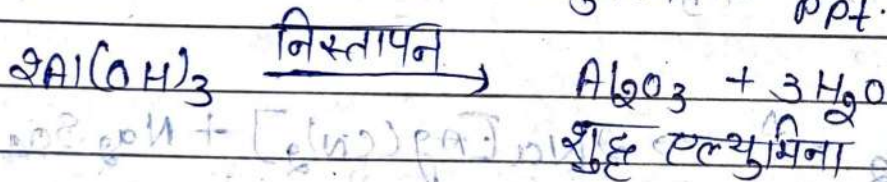 ppt.
2Al(OH)3 निस्तापन → Al2O3 + 3H2O
शुद्ध एल्युमिना